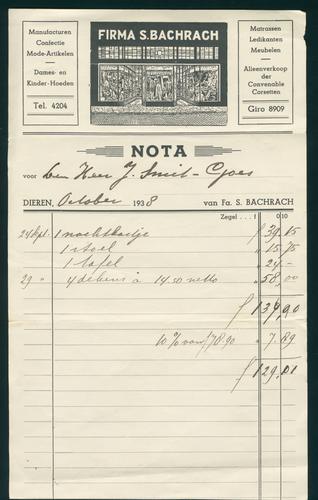 Manufacturen
Confectie
Mode-Artikelen
Dames- en
Kinder-Hoeden
Tel. 4204
FIRMA S.BACHRACH
Matrassen
Ledikanten
Meubelen
Alleenverkoop
der
Convenable
Corsetten
Giro 8909
NOTA
voor Den Heer J. Smit - Goes
DIEREN, October 1938 van Fa. S. BACHRACH
Zegel . . f 0 10
24 Sept. 1 nachtkastje f 39.15
1 stoel " 15.75
1 tafel " 24.-
29 " 4 dekens à 14.50 netto " 58,00
10% van f 78.90 " 7.89
f 129.01